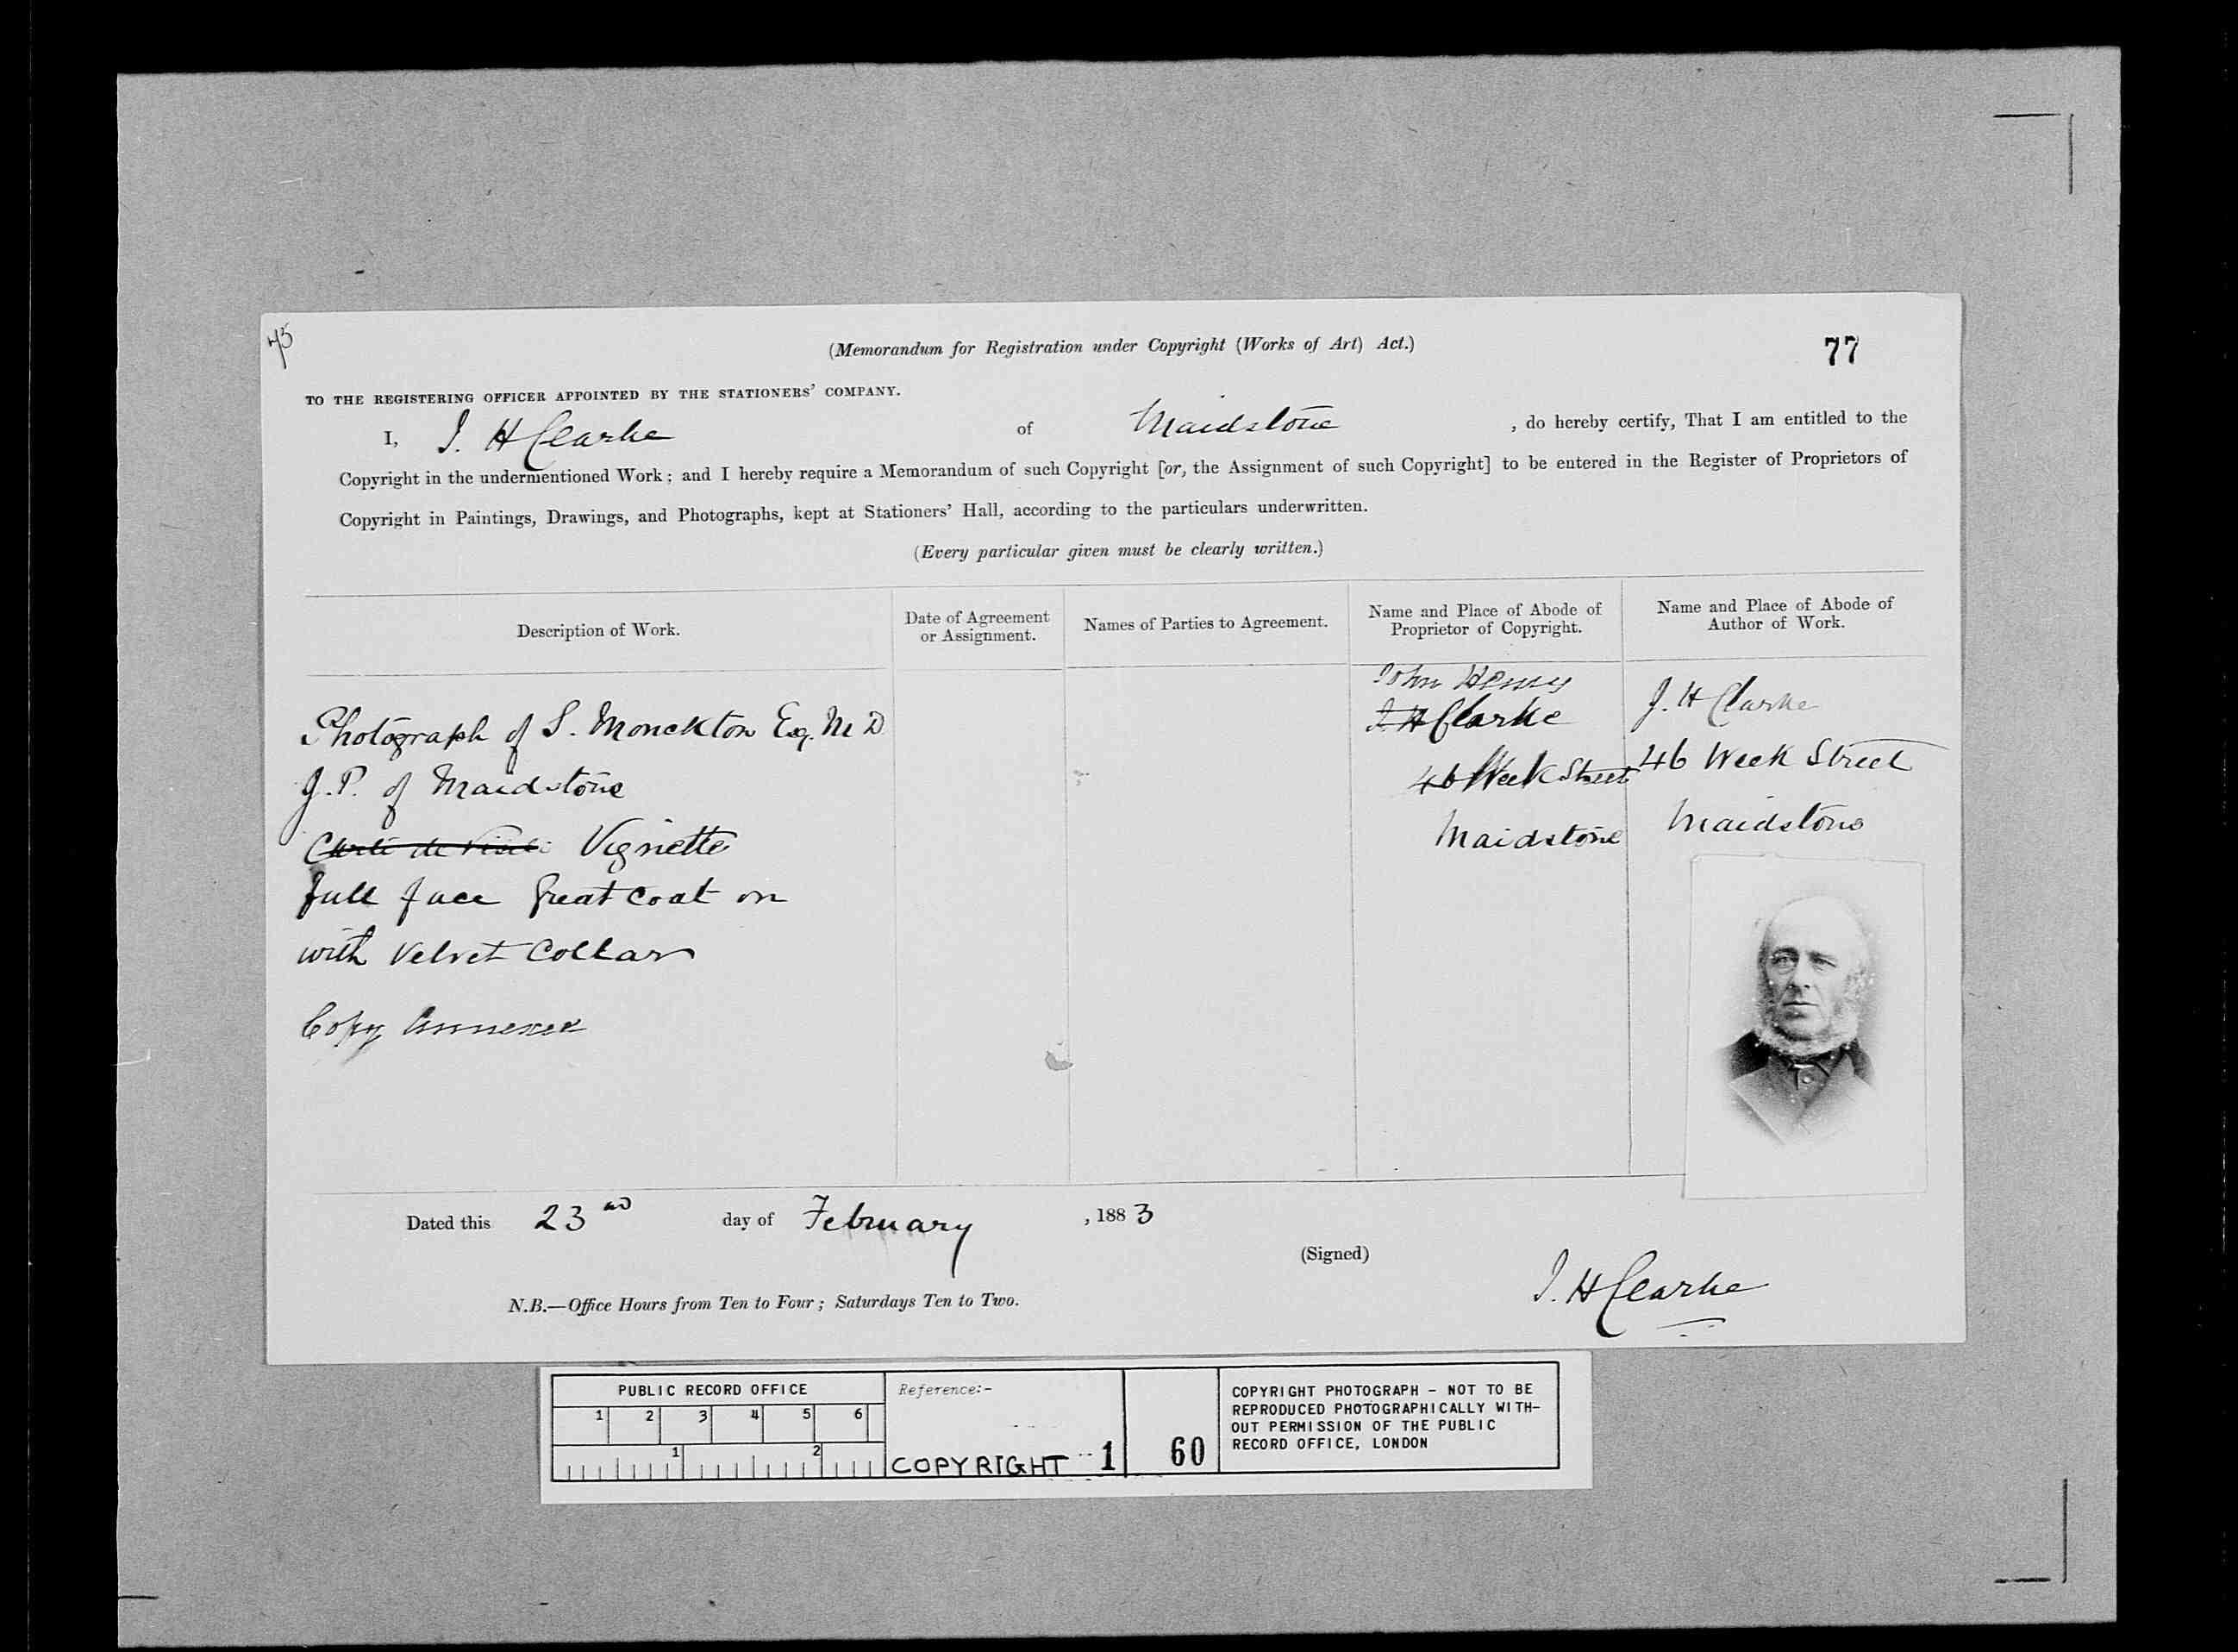 75
(Memorandum for Registration under Copyright (Works of Art) Act.)
77
TO THE REGISTERING OFFICER APPOINTED BY THE STATIONERS' COMPANY.
I, J. H Clarke of Maidstone , do hereby certify, That I am entitled to the
Copyright in the undermentioned Work; and I hereby require a Memorandum of such Copyright [or, the Assignment of such Copyright] to be entered in the Register of Proprietors of
Copyright in Paintings, Drawings, and Photographs, kept at Stationers' Hall, according to the particulars underwritten.
(Every particular given must be clearly written.)
Description of Work.
Date of Agreement
or Assignment.
Names of Parties to Agreement.
Name and Place of Abode of
Proprietor of Copyright.
Name and Place of Abode of
Author of Work.
Photograph of S. Monckton Esq. M D
J.P. of Maidstone
Carte de Visite Vignette
full face Great Coat on
with Velvet Collar
Copy Annexed
John Henry
J. H Clarke
46 Week Street
Maidstone
J. H Clarke
46 Week Street
Maidstone
Dated this 23rd day of February , 1883
(Signed)
J. H Clarke
N.B.—Office Hours from Ten to Four; Saturdays Ten to Two.
PUBLIC RECORD OFFICE
1 2 3 4 5 6
1 2
Reference:-
COPYRIGHT 1
60
COPYRIGHT PHOTOGRAPH - NOT TO BE
REPRODUCED PHOTOGRAPHICALLY WITH-
OUT PERMISSION OF THE PUBLIC
RECORD OFFICE, LONDON